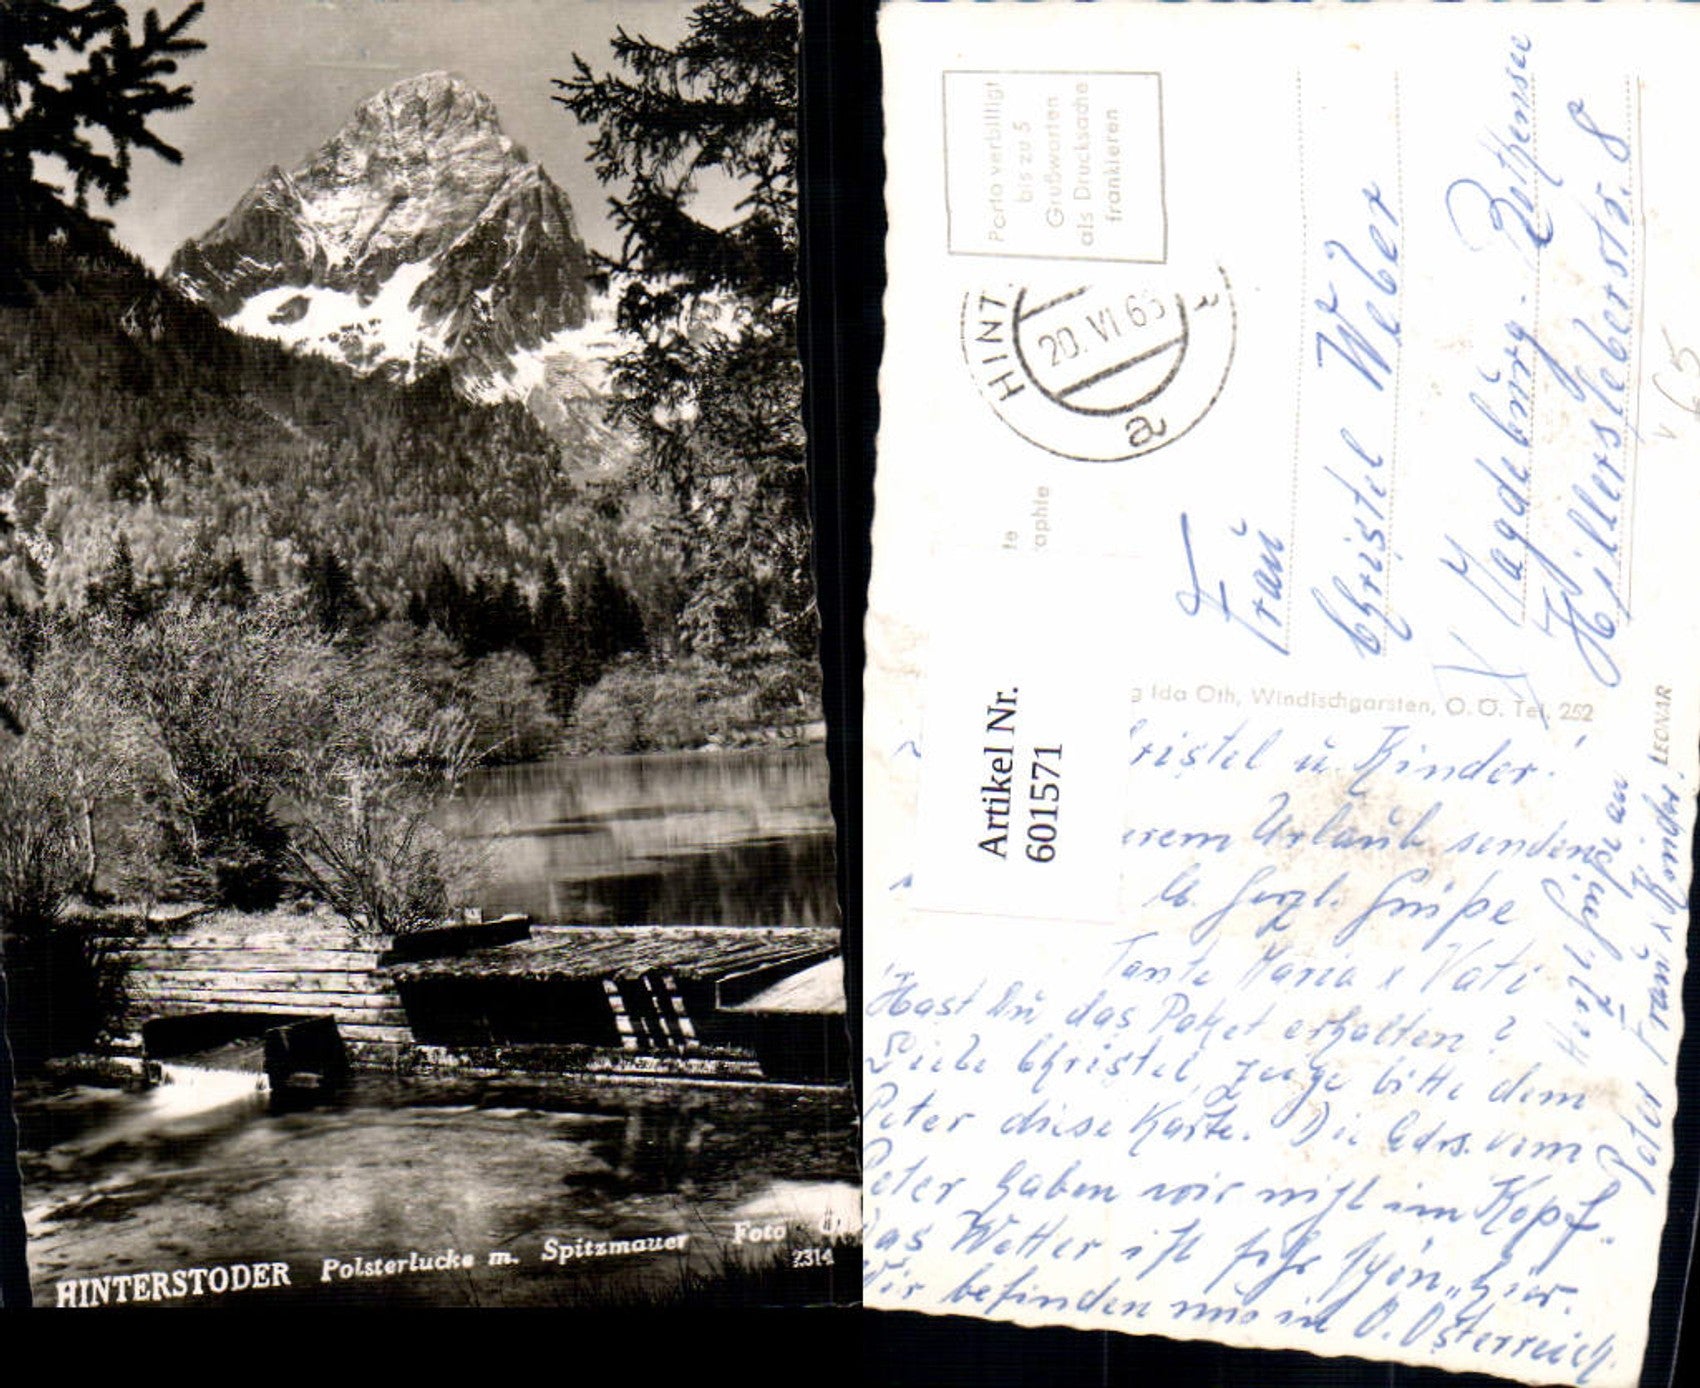 HINTERSTODER Polsterlucke m. Spitzmauer Foto
2314
Porto verbilligt
bis zu 5
Grußworten
als Drucksache
frankieren
HINT
20. VI 65
a
te
aphie
Frau
Christel Weber
X Magdeburg-Rothensee
Hillersleberstr. 8
v 65
g Ida Oth, Windischgarsten, O. Ö. Tel. 252
LEONAR
Artikel Nr.
601571
ristel u. Kinder!
erem Urlaub senden
herzl. Grüße
Tante Maria & Vati
Hast Du das Paket erhalten?
Liebe Christel, zeige bitte dem
Peter diese Karte. Die Adrs. vom
Peter haben wir nicht im Kopf.
Das Wetter ist sehr schön hier.
Wir befinden uns in O. Österreich.
Herzl. Grüße an
Peter Frau & Kinder